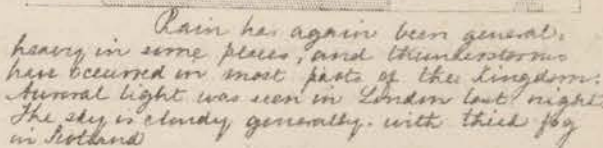 Rain has again been general,
heavy in some places, and thunderstorms
have occurred in most parts of the Kingdom.
Auroral light was seen in London last night
The sky is cloudy generally. with thick fog
in Scotland